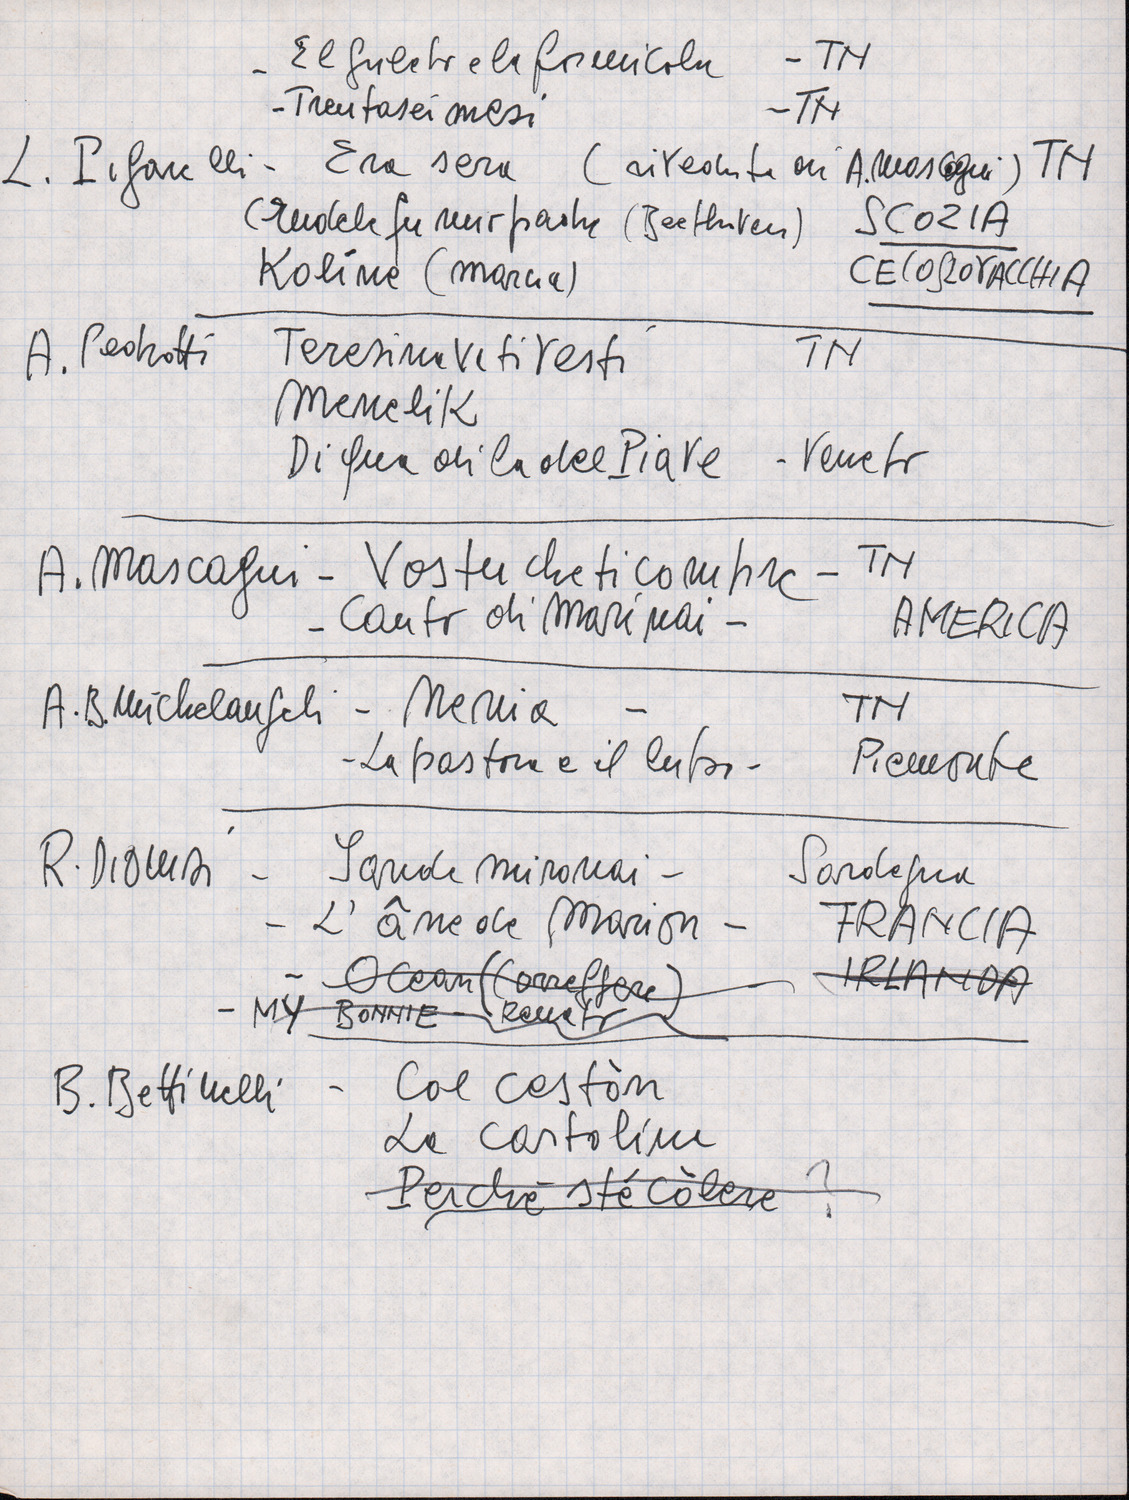 - El griletr e la formicola - TN
- Trentasei mesi - TN
L. Pigarelli - Era sera (riveduta di A. Mascagni) TN
(Beethoven) SCOZIA
Koline (marcia) CECOSLOVACCHIA
A. Pedrotti Teresina veti vesti TN
Menelik
Di qua di la del Piave - Veneto
A. Mascagni - Vostu che ti compre - TN
- Canto di Marinai - AMERICA
A. B. Michelangeli - Nenia - TN
- La pastora e il lupo - Piemonte
R. Dionisi - mironai - Sardegna
- L'âne de Marion - FRANCIA
- Ocean (Correggere) IRLANDA
- MY BONNIE - Renato
B. Bettinelli - Col cestòn
La cartolina
Perché sté còlere ?